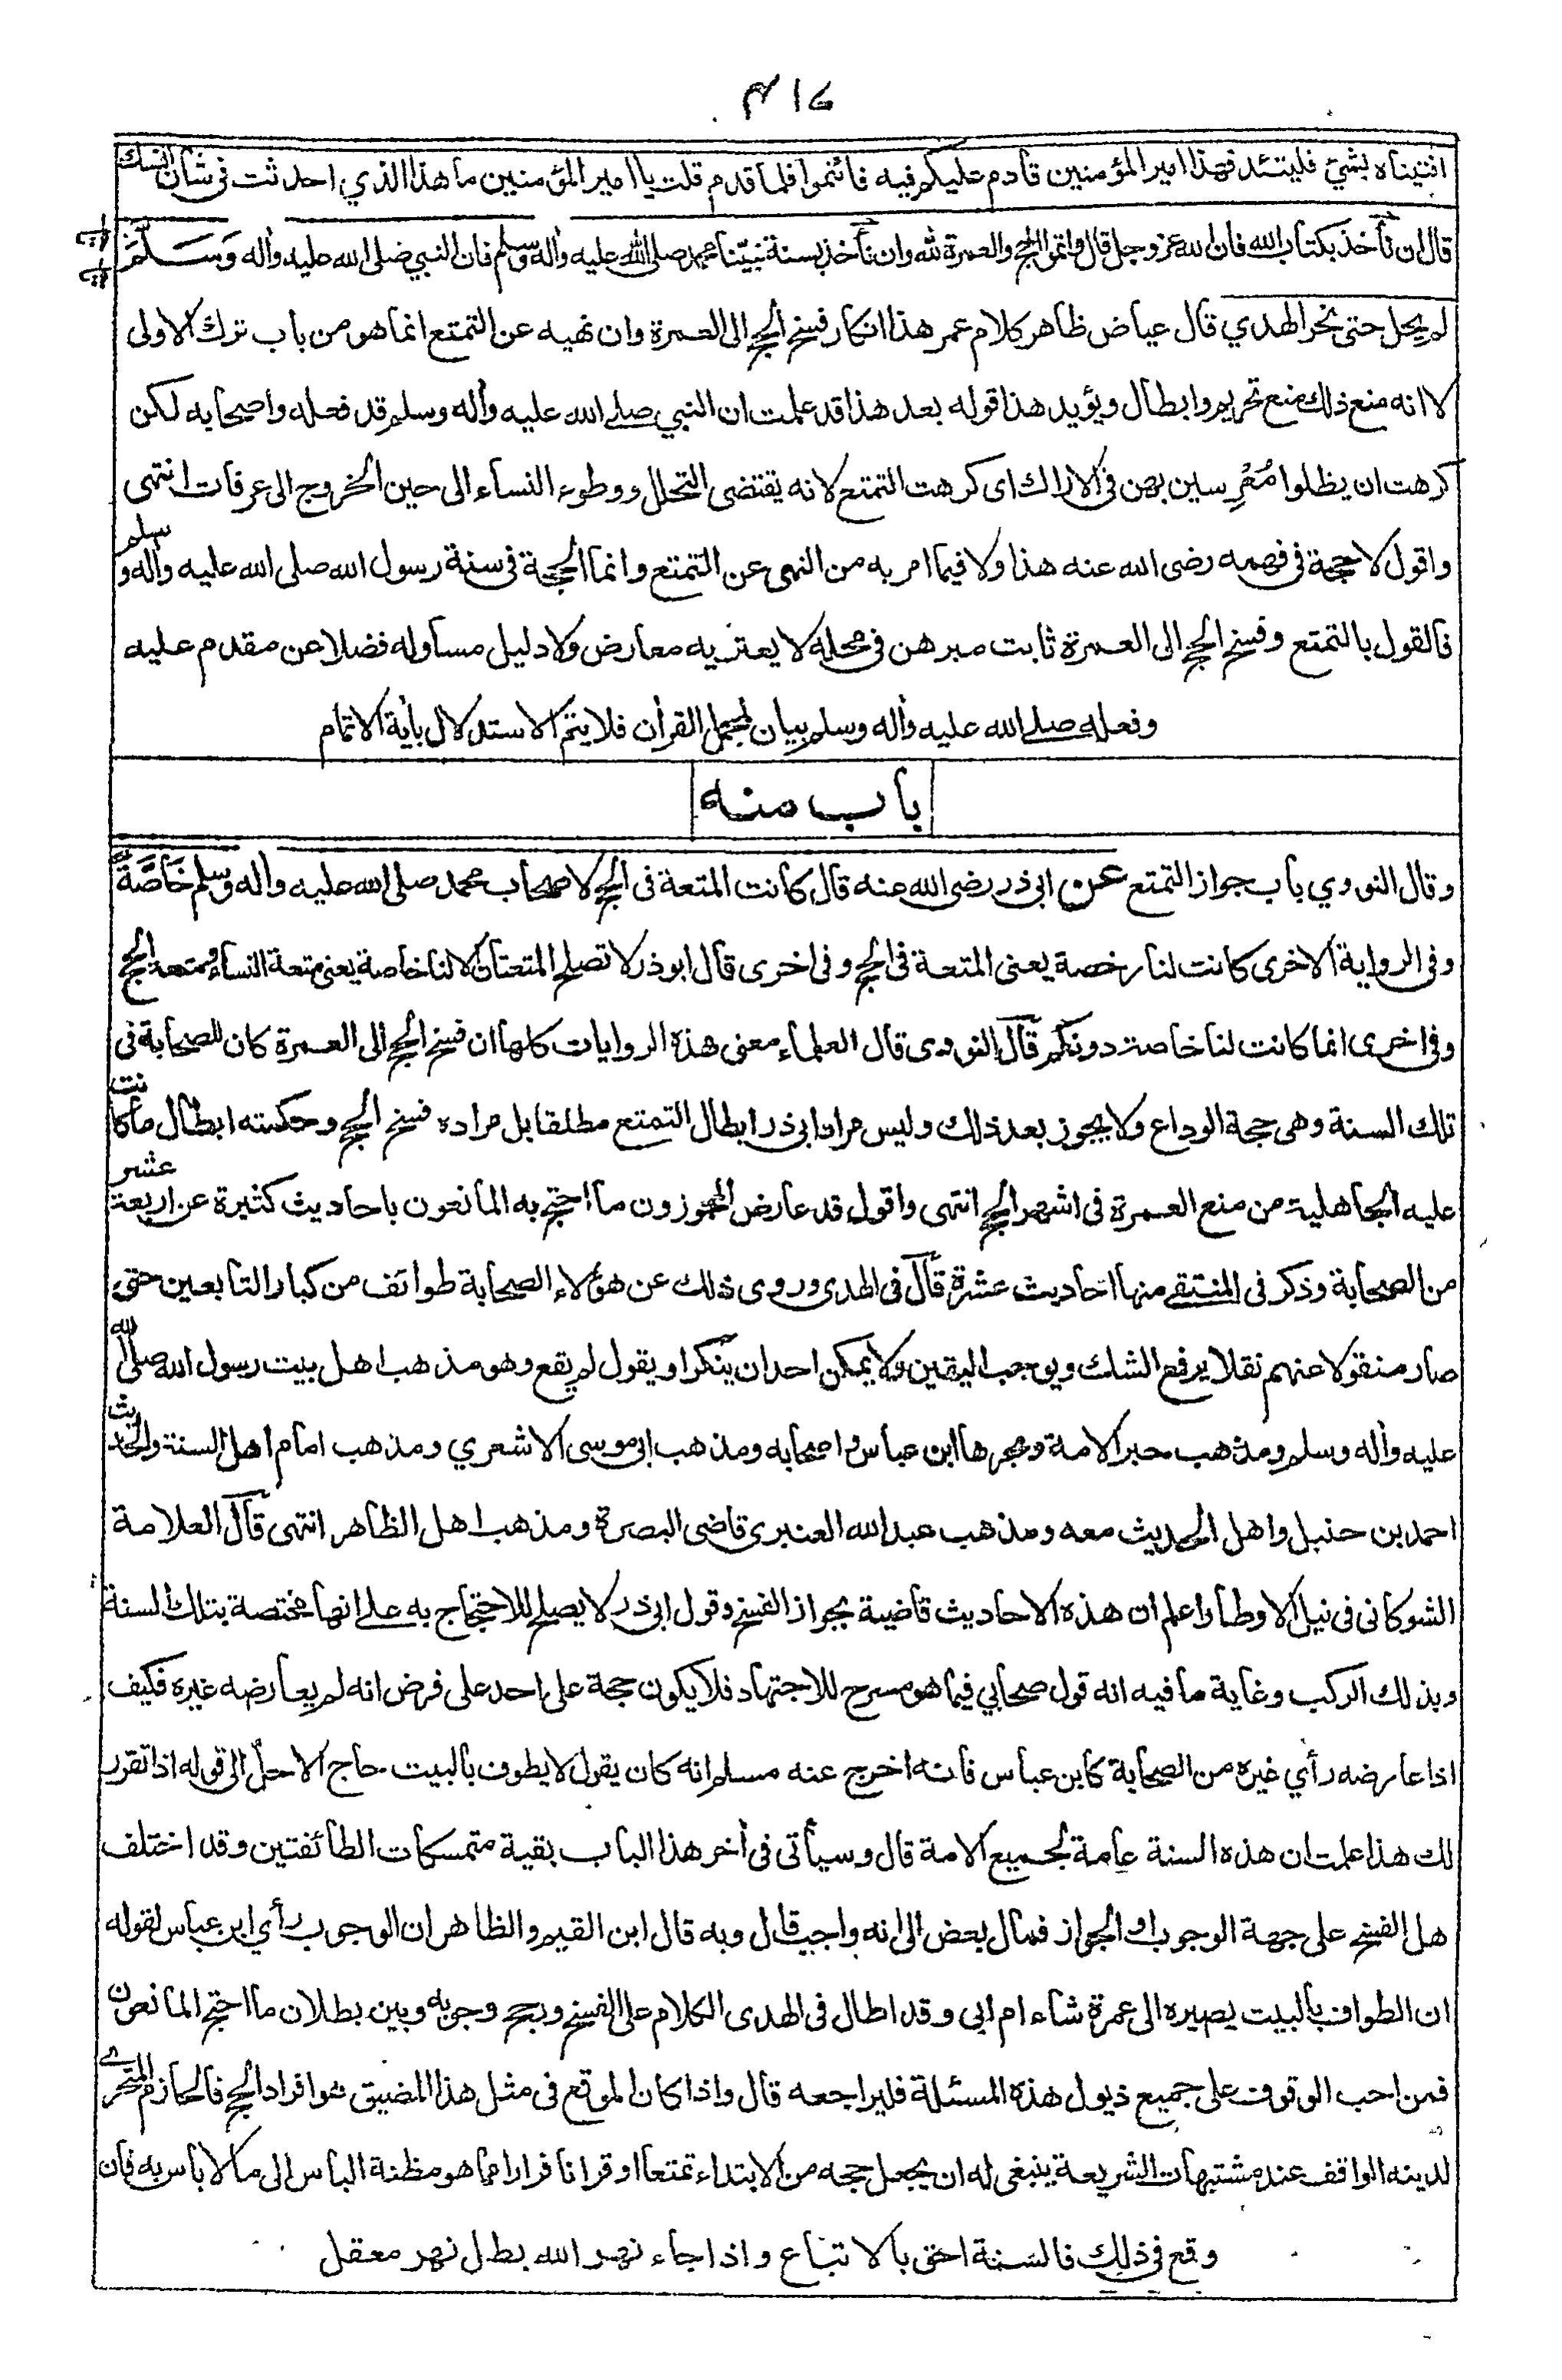 ٤١٦
افتيناه بشيء فليتئد فهذا امير المؤمنين قادم عليكم فيه فائتموا فلما قدم قلت يا امير المؤمنين ما هذا الذي احدثت في شان النسك
قال ان نأخذ بكتاب الله فان الله عز وجل قال واتموا الحج والعمرة لله وان نأخذ بسنة نبينا محمد صلى الله عليه وأله وسلم فان النبي صلى الله عليه وأله وَسَلَّمَ
لم يحل حتى نحر الهدي قال عياض ظاهر كلام عمر هذا انكار فسخ الحج الى العمرة وان نهيه عن التمتع انما هو من باب ترك الاولى
لا انه منع ذلك منع تحريم وابطال ويؤيد هذا قوله بعد هذا قد علمت ان النبي صلے الله عليه وأله وسلم قد فعله واصحابه لكن
كرهت ان يظلوا مُعْرِسين بهن في الاراك اى كرهت التمتع لانه يقتضى التحلل ووطوء النساء الى حين الخروج الى عرفات انتهى
واقول لا حجة في فهمه رضى الله عنه هذا ولا فيما امر به من النهى عن التمتع وانما الحجة فى سنة رسول الله صلى الله عليه وأله وسلم
فالقول بالتمتع وفسخ الحج الى العمرة ثابت مبرهن في محله لا يعتريه معارض ولا دليل مساوله فضلا عن مقدم عليه
وفعله صلے الله عليه وأله وسلم بيان لمجمل القرأن فلا يتم الاستدلال بأية الاتمام
باب منه
وقال النووي باب جواز التمتع عن ابى ذر رضى الله عنه قال كانت المتعة فى الحج لاصحاب محمد صلى الله عليه وأله وسلم خَاصَّةً
وفى الرواية الاخرى كانت لنا رخصة يعنى المتعة فى الحج وفى اخرى قال ابوذر لا تصلح المتعتان الا لنا خاصة يعنى متعة النساء ومتعة الحج
وفى اخرى انما كانت لنا خاصة دونكم قال النووى قال العلماء معنى هذه الروايات كلها ان فسخ الحج الى العمرة كان للصحابة فى
تلك السنة وهى حجة الوداع ولا يجوز بعد ذلك وليس مراد ابى ذر ابطال التمتع مطلقا بل مراده فسخ الحج وحكمته ابطال ما كانت
عليه الجاهلية من منع العمرة فى اشهر الحج انتهى واقول قد عارض المجوزون ما احتج به المانعون باحاديث كثيرة عن اربعة عشر
من الصحابة وذكر فى المنتقے منها احاديث عشرة قال فى الهدى وروى ذلك عن هؤلاء الصحابة طوائف من كبار التابعين حتى
صار منقولا عنهم نقلا يرفع الشك ويوجب اليقين ولا يمكن احد ان ينكر او يقول لم يقع وهو مذهب اهل بيت رسول الله صلى الله
عليه وأله وسلم ومذهب حبر الامة وبحرها ابن عباس واصحابه ومذهب ابى موسى الاشعري ومذهب امام اهل السنة والحديث
احمد بن حنبل واهل الحديث معه ومذهب عبد الله العنبرى قاضى البصرة ومذهب اهل الظاهر انتهى قال العلامة
الشوكانى فى نيل الاوطار اعلم ان هذه الاحاديث قاضية بجواز الفسخ وقول ابى ذر لا يصلح للاحتجاج به علے انها مختصة بتلك السنة
وبذلك الركب وغاية ما فيه انه قول صحابي فيما هو مسرح للاجتهاد فلا يكون حجة على احد على فرض انه لم يعارضه غيره فكيف
اذا عارضه رأي غيره من الصحابة كابن عباس فانه اخرج عنه مسلم انه كان يقول لا يطوف بالبيت حاج الا حل الى قوله اذا تقرر
لك هذا علمت ان هذه السنة عامة لجميع الامة قال وسيأتى فى أخر هذا الباب بقية متمسكات الطائفتين وقد اختلف
هل الفسخ على جهة الوجوب او الجواز فمال بعض الى انه واجب قال وبه قال ابن القيم والظاهر ان الوجوب رأي ابن عباس لقوله
ان الطواف بالبيت يصيره الى عمرة شاء ام ابى وقد اطال فى الهدى الكلام على الفسخ ورجح وجوبه وبين بطلان ما احتج المانعون
فمن احب الوقوف على جميع ذيول هذه المسئلة فليراجعه قال واذا كان الموقع فى مثل هذا المضيق هو افراد الحج فالحازم المتحرے
لدينه الواقف عند مشتبهات الشريعة ينبغى له ان يجعل حجه من الابتداء تمتعا او قرانا فرارا مما هو مظنة الباس الى ما لا باس به فان
وقع فى ذلك فالسنة احق بالاتباع واذا جاء نهر الله بطل نهر معقل